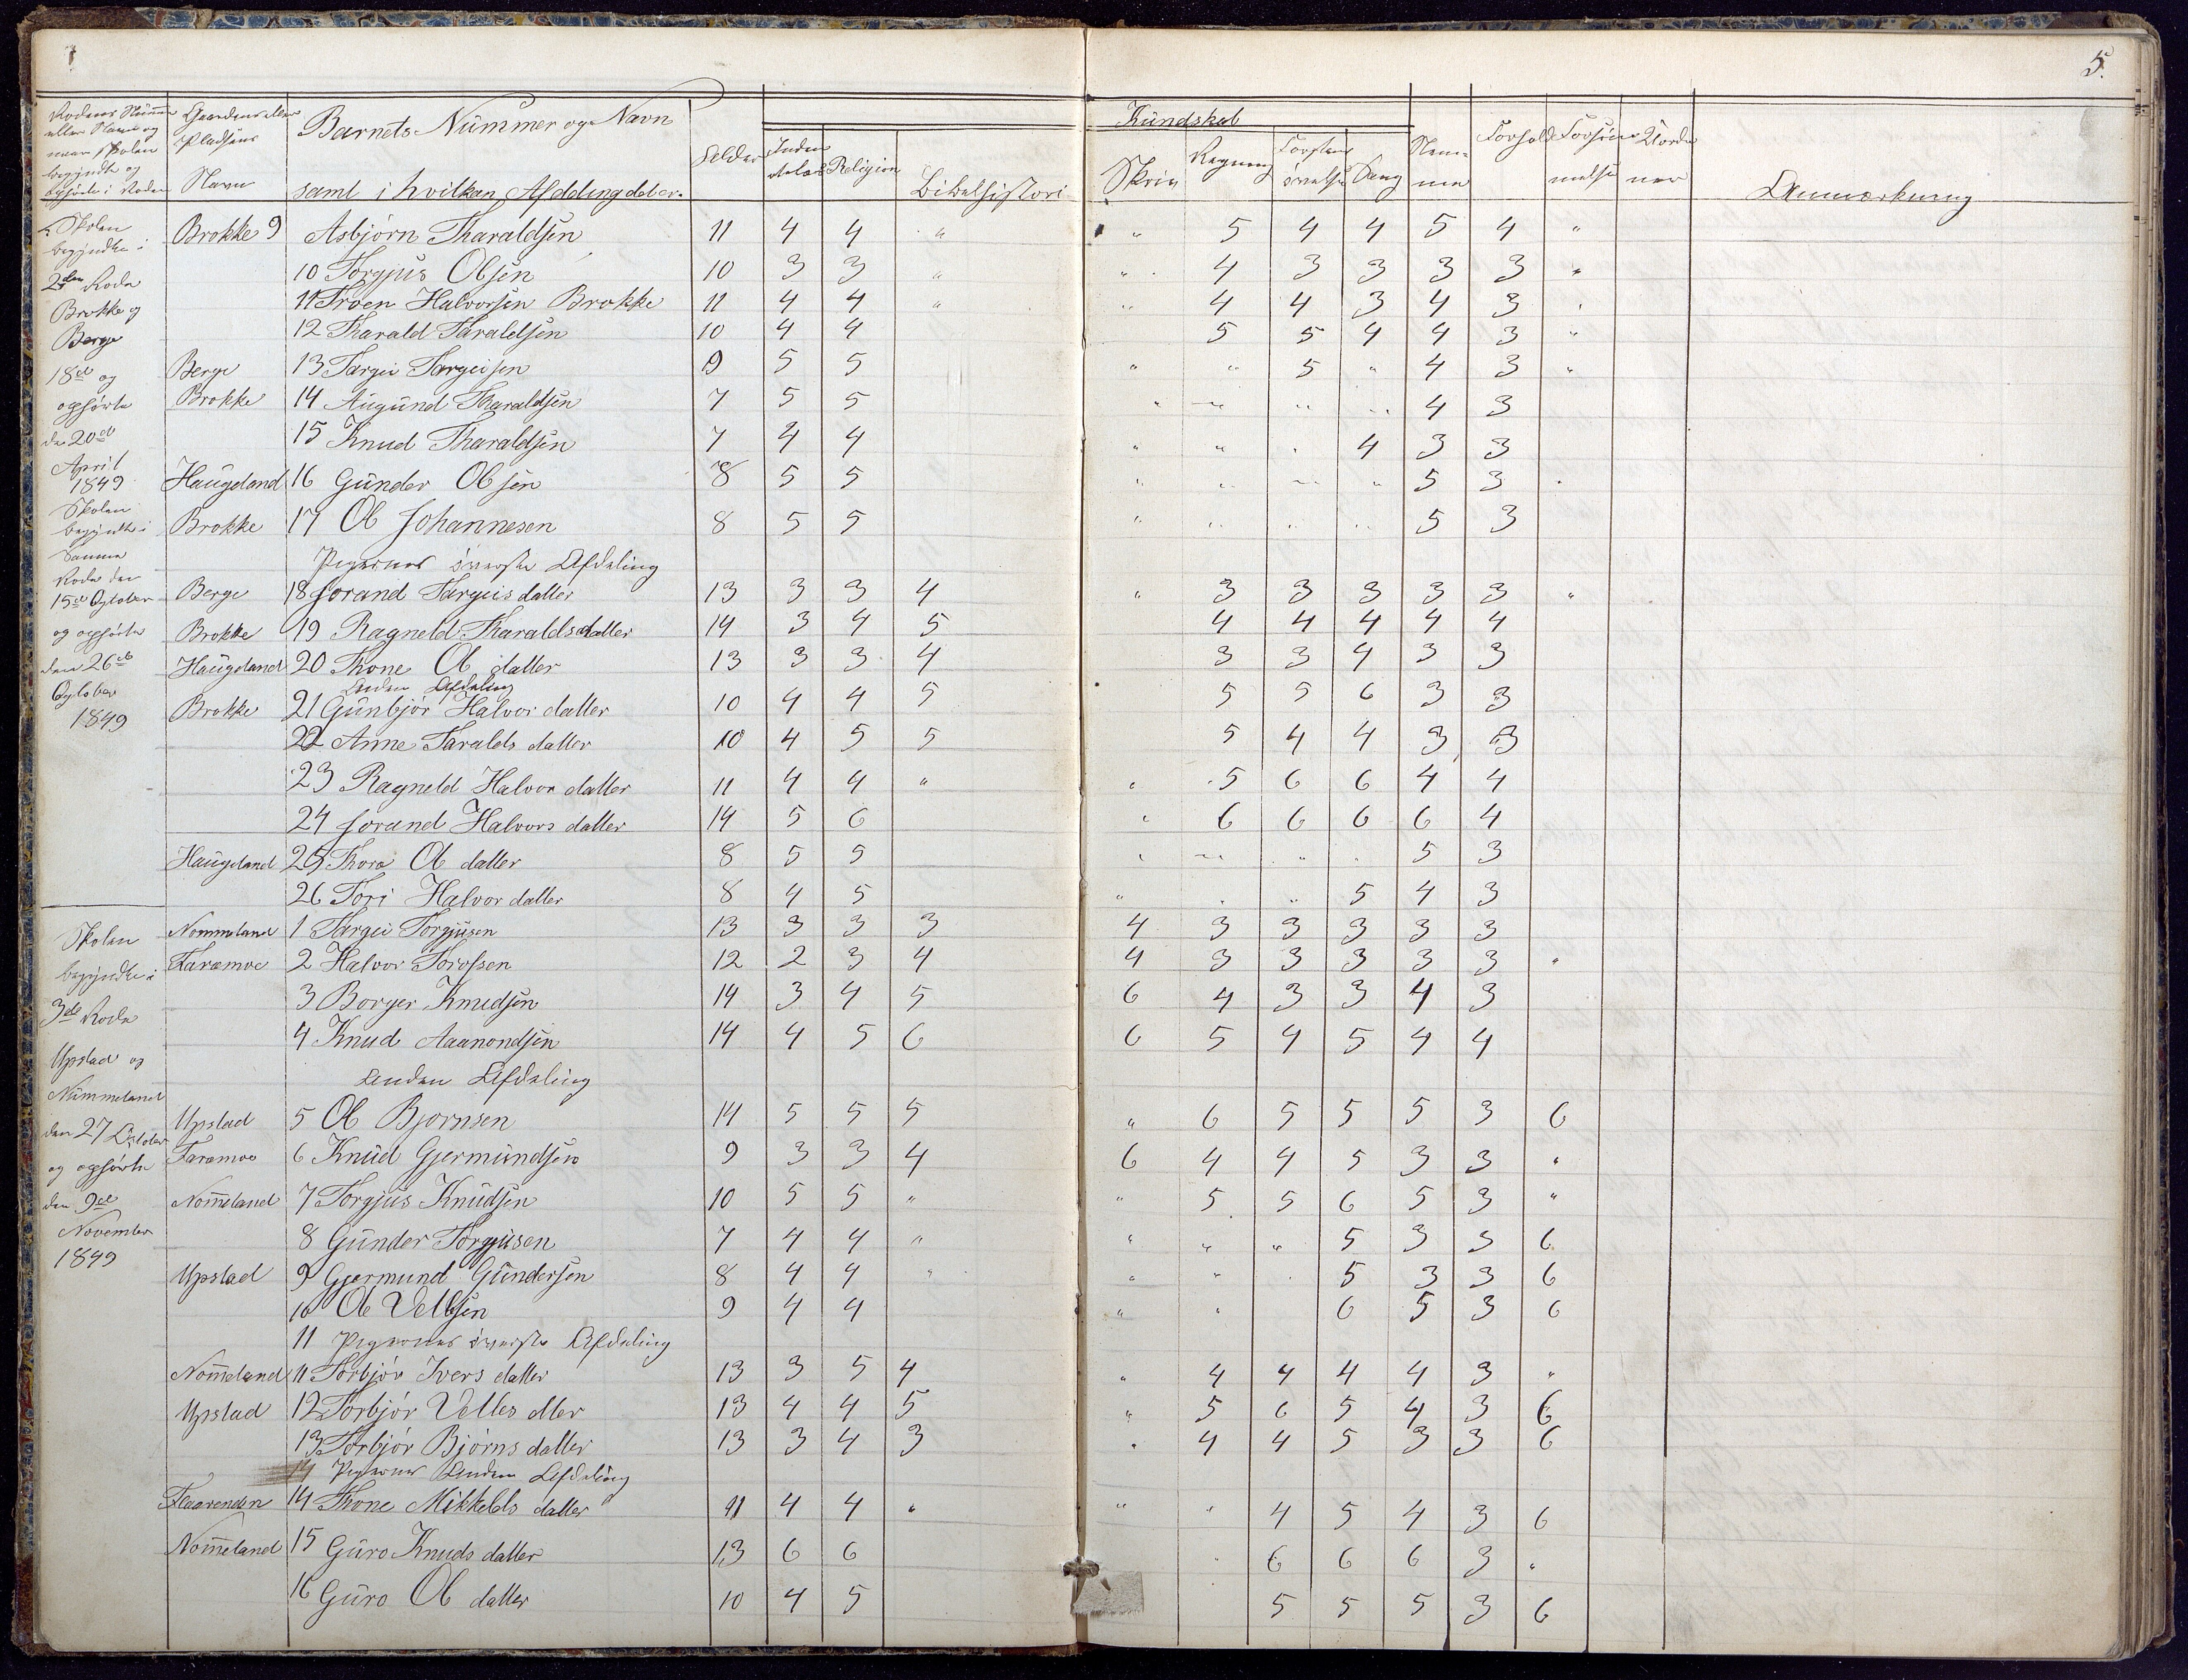 5.
Rodens Nummer Gaardens eller Barnets Nummer og Navn Kundskab
eller Navn og Pladsens Alder Inden Religion Bibelhistori Skriv Regning Forstands Sang Nem- Forhold Forsøm- Vorde
naar Skolen Navn samt i hvilken Afdeling det er. øvelse me melse ner Anmærkning
begyndte og
ophørte i Roden
Skolen Brokke 9 Asbjørn Tharaldsen 11 4 4 " " 5 4 4 5 4 "
begyndte i
2den Rode 10 Torgjus Olsen 10 3 3 " " 4 3 3 3 3 "
Brokke og 11 Troen Halvorsen Brokke 11 4 4 " " 4 4 3 4 3 "
Berge 12 Tharald Taraldsen 10 4 4 5 5 4 4 3 "
18de og Berge 13 Targei Targeisen 9 5 5 " " 5 " 4 3 "
ophørte Brokke 14 Augund Tharaldsen 7 5 5 " " " " 4 3
den 20de 15 Knud Tharaldsen 7 4 4 " " " 4 3 3
April
1849 Haugeland 16 Gunder Olsen 8 5 5 " " " " 5 3 "
Skolen
begyndte i Brokke 17 Ol Johannesen 8 5 5 " " " " 5 3
samme
Pigernes øverste Afdeling
Rode den
15de October Berge 18 Jorand Targeisdatter 13 3 3 4 " 3 3 3 3 3 "
og ophørte Brokke 19 Ragneld Tharaldsdatter 14 3 4 5 4 4 4 4 4
den 26de Haugeland 20 Thone Ol datter 13 3 3 4 3 3 4 3 3
Anden Afdeling
October Brokke 21 Gunbjør Halvor datter 10 4 4 5 5 5 6 3 3
1849
22 Anne Taralds datter 10 4 5 5 5 4 4 3 3
23 Ragneld Halvor datter 11 4 4 " " 5 6 6 4 4
24 Jorand Halvors datter 14 5 6 " 6 6 6 6 4
Haugeland 25 Thora Ol datter 8 5 5 " " " " 5 3
26 Tori Halvor datter 8 4 5 " " " 5 4 3
Skolen Nommeland 1 Targei Torgjusen 13 3 3 3 4 3 3 3 3 3
begyndte i Faremoe 2 Halvor Torossen 12 2 3 4 4 3 3 3 3 3 "
3die Rode 3 Borger Knudsen 14 3 4 5 6 4 3 3 4 3
4 Knud Aaanondsen 14 4 5 6 6 5 4 5 4 4
Upstad og
Anden Afdeling
Nummeland
den 27 October Upstad 5 Ol Bjornsen 14 5 5 5 " 6 5 5 5 3 6
og ophørte Faremoe 6 Knud Gjermundsen 9 3 3 4 6 4 4 5 3 3 "
den 9de Nom̅eland 7 Torgjus Knudsen 10 5 5 " " 5 5 6 5 3 "
November 8 Gunder Torgjusen 7 4 4 " " " " 5 3 3 6
1849 Upstad 9 Gjermund Gundersen 8 4 4 " " " " 5 3 3 6
10 Ol Vellsen 9 4 4 " " 6 5 3 6
11 Pigernes øverste Afdeling
Nom̅eland 11 Torbjør Ivers datter 13 3 5 4 " 4 4 4 4 3 "
Upstad 12 Torbjør Velles dtter 13 4 4 5 " 5 6 5 4 3 6
13 Torbjør Bjørns datter 13 3 4 3 " 4 4 5 3 3 6
14 Pigernes Anden Afdeling
Flaarenden 14 Thone Mikkelds datter 11 4 4 " " " 4 5 4 3 6
Nom̅eland 15 Guro Knuds datter 13 6 6 " 6 6 6 3 "
16 Guro Ol datter 10 4 5 5 5 5 3 6